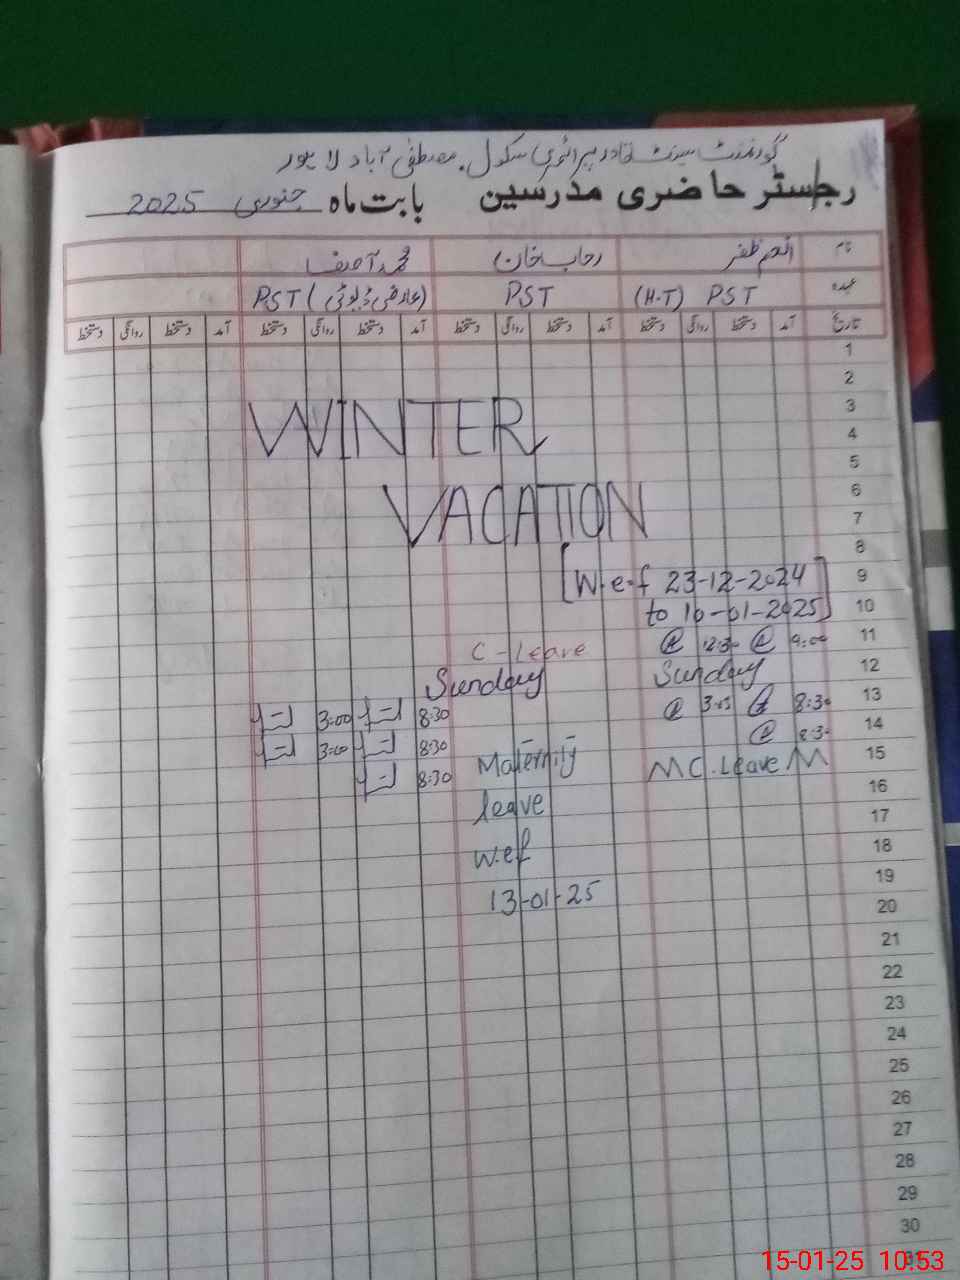 گورنمنٹ سینٹ قادر پرائمری سکول، مصطفیٰ آباد لاہور
رجسٹر حاضری مدرسین بابت ماہ جنوری 2025
نام انعم ظفر رحاب خان محمد آصف
عہدہ PST (H.T) PST PST (عارضی ڈیوٹی)
تاریخ آمد دستخط روانگی دستخط آمد دستخط روانگی دستخط آمد دستخط روانگی دستخط آمد دستخط روانگی دستخط
1
2
3
WINTER
4
5
6
VACATION
7
8
[W.e.f 23-12-2024 9
to 10-01-2025] 10
C-leave 12:30 9:00 11
Sunday Sunday 12
3:00 8:30 3:05 8:30 13
3:00 8:30 8:30 14
8:30 Maternity M C.leave M 15
leave 16
17
w.ef 18
13-01-25 19
20
21
22
23
24
25
26
27
28
29
30
31
15-01-25 10:53